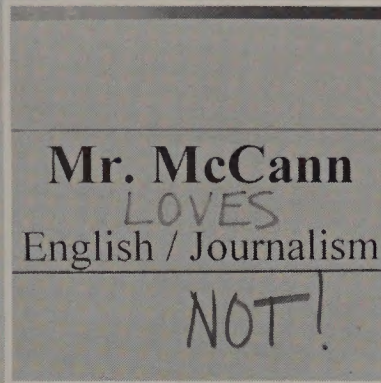 Mr. McCann
LOVES
English / Journalism
NOT!